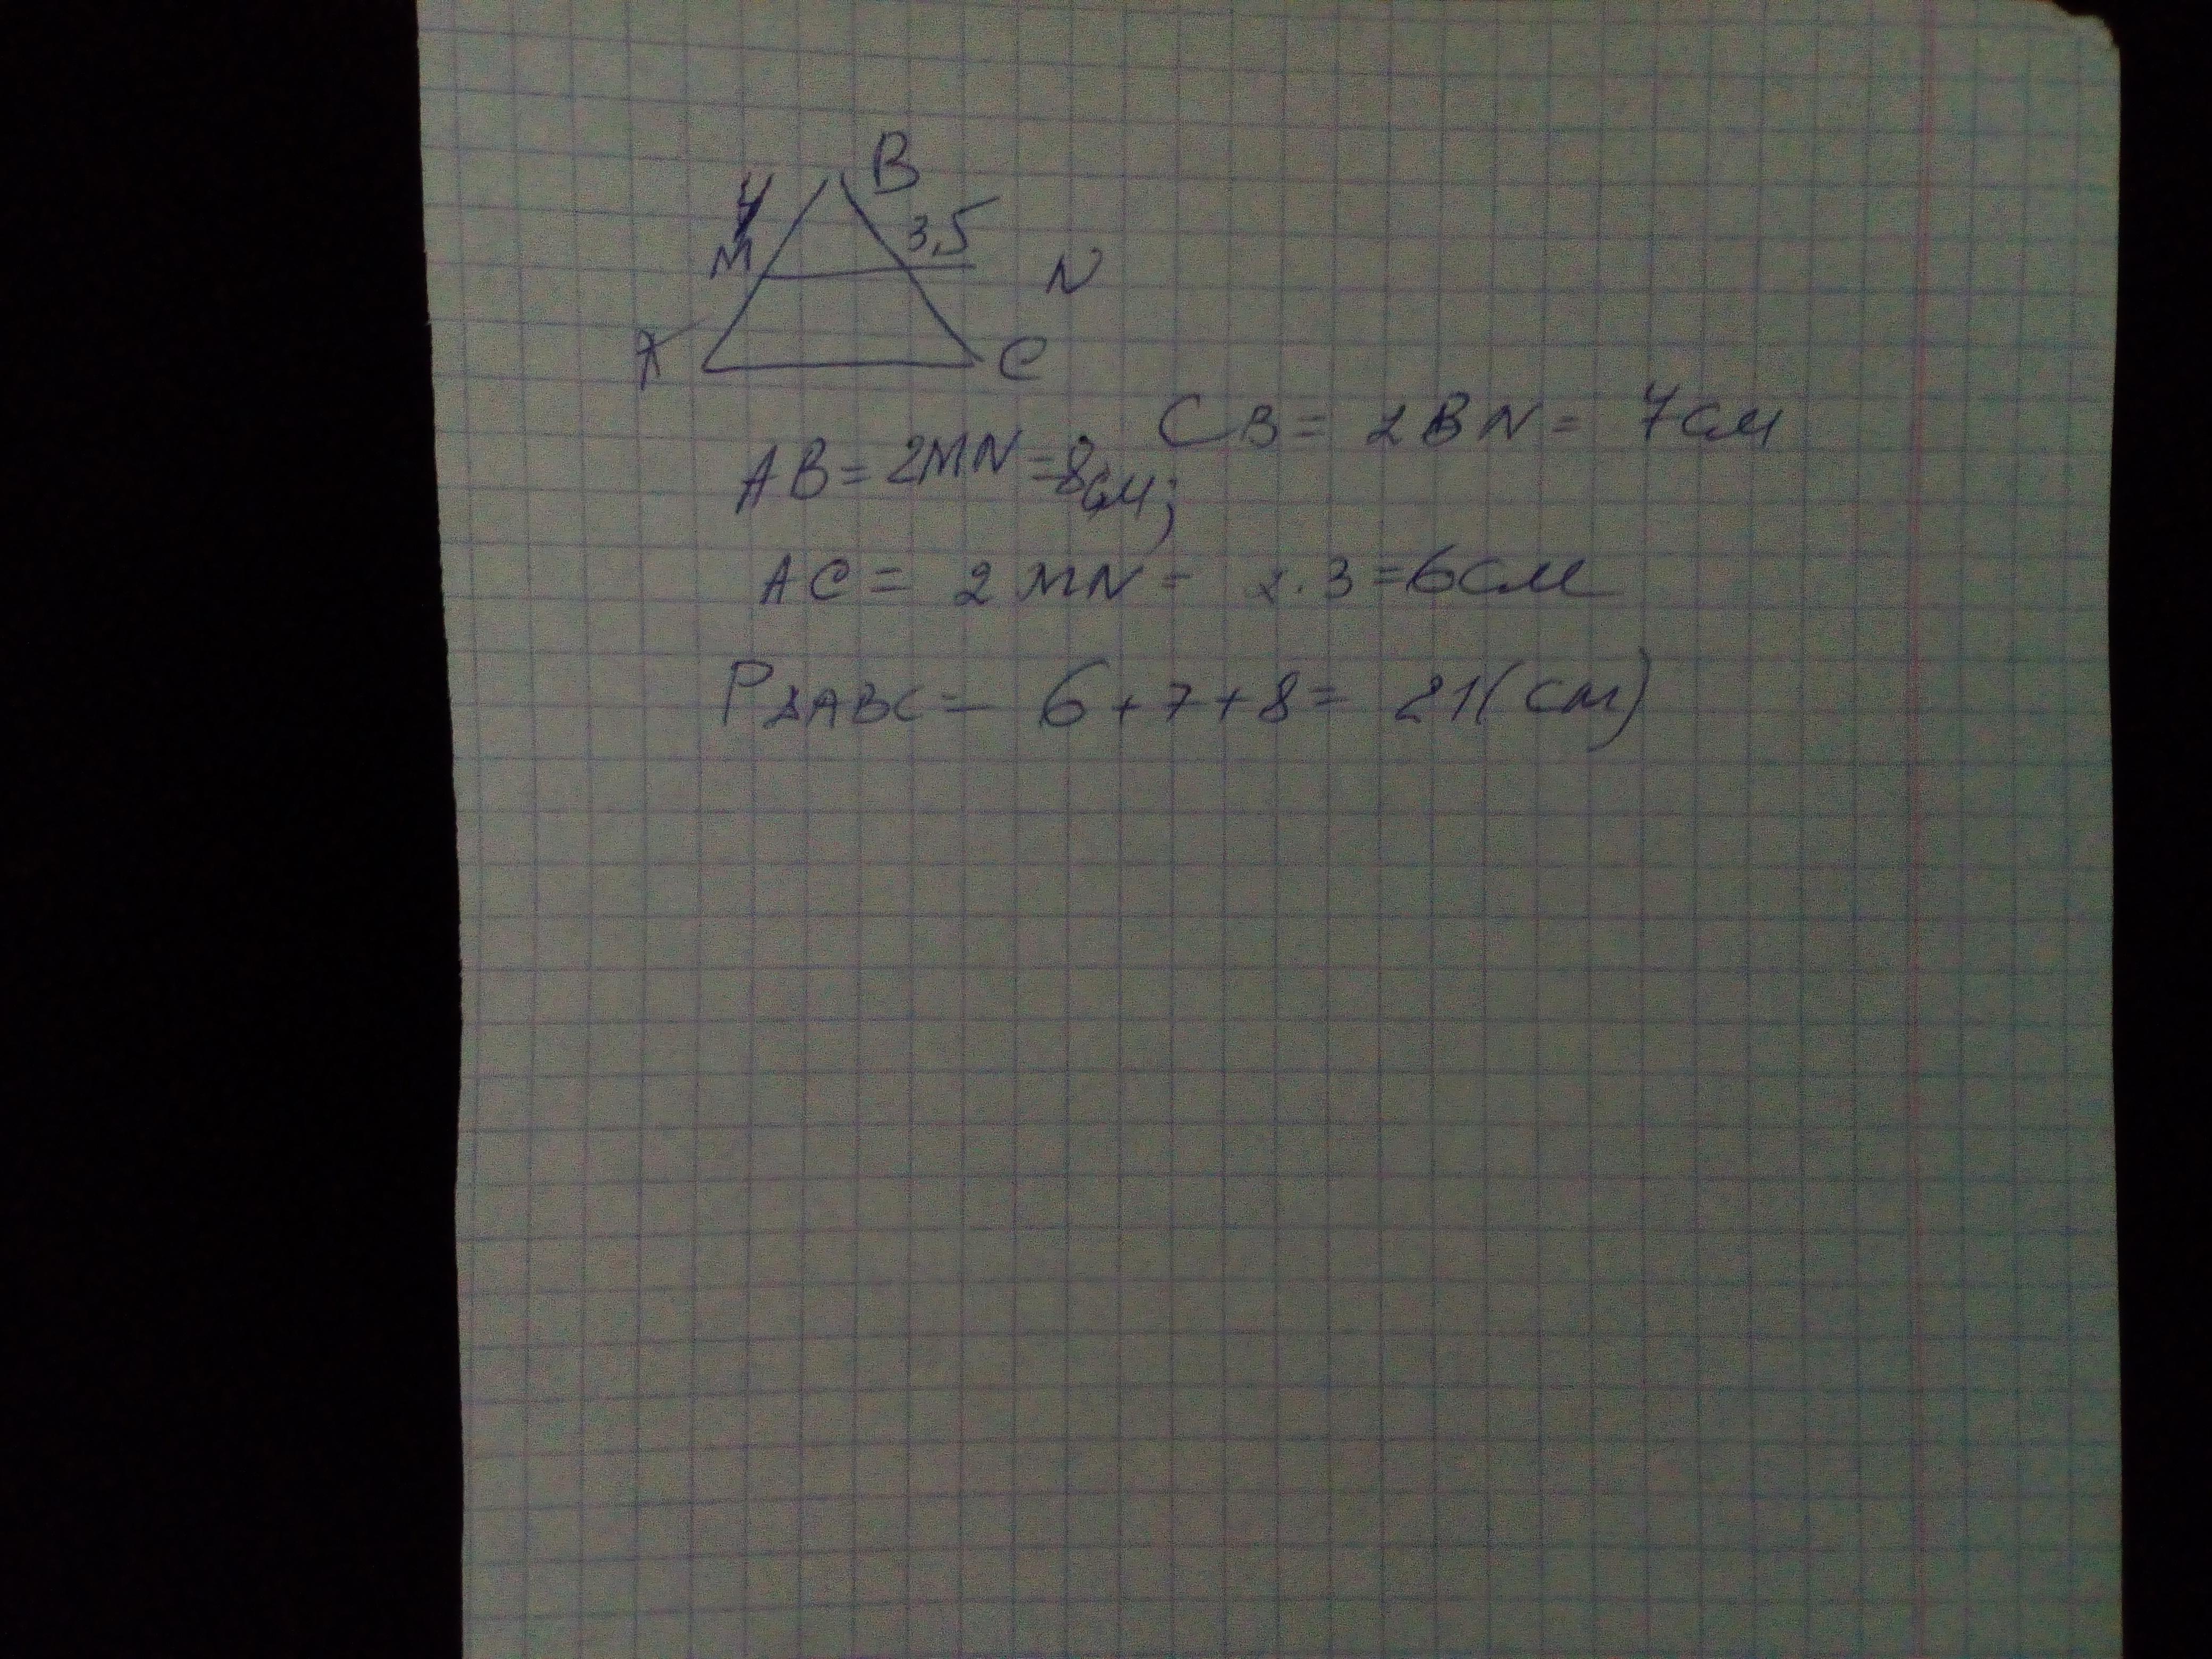 B
4
3,5
M
N
A
C
CB = 2BN = 7см
AB = 2MN = 8см;
AC = 2MN = 2·3 = 6см
P△ABC = 6+7+8 = 21(см)